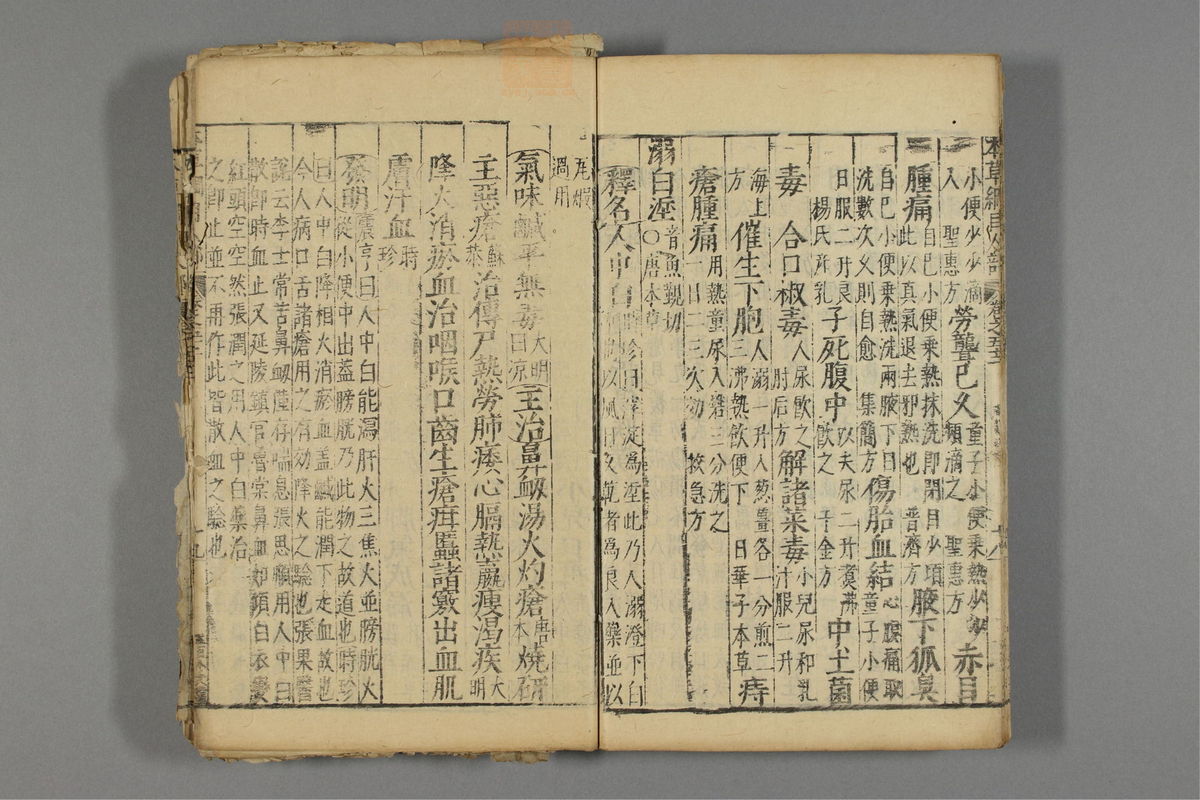 本草綱目人部 卷之五十二
小便少少滴入 聖惠方 勞聾已久 童子小便乘熱少少頻滴之 聖惠方 赤目
腫痛 自己小便乘熱抹洗即閉目少頃此以真氣退去邪熱也 普濟方 腋下狐臭
自己小便乘熱洗兩腋下日洗數次久則自愈 集簡方 傷胎血結 心腹痛取童子小便
日服二升良 楊氏産乳 子死腹中 以夫尿二升煑沸飲之 千金方 中土菌
毒 合口椒毒 人尿飲之 肘后方 解諸菜毒 小兒尿和乳汁服二升
海上方 催生下胞 人溺一升入葱薑各一分煎二三沸熱飲便下 日華子本草 痔
瘡腫痛 用熱童尿入礬三分洗之一日二三次効 救急方
溺白垽 音魚覲切○唐本草
釋名人中白 時珍曰滓淀為垽此乃人溺澄下白 以風日久乾者為良入藥並以
瓦煅過用
氣味鹹平無毒 大明曰凉 主治鼻衂湯火灼瘡 唐本 燒研
主惡瘡 蘇恭 治傳尸熱勞肺痿心膈熱羸瘦渴疾 大明
降火消瘀血治咽喉口齒生瘡疳䘌諸竅出血肌
膚汗血 時珍
發明震亨曰人中白能瀉肝火三焦火並膀胱火
從小便中出蓋膀胱乃此物之故道也時珍
曰人中白降相火消瘀血盖鹹能潤下走血故也
今人病口舌諸瘡用之有効降火之驗也張果醫
説云李士常苦鼻衂僅存喘息張思順用人中白
散即時血止又延陵鎮官曾棠鼻血如傾白衣變
紅頭空空然張潤之用人中白藥治
之即止並不再作此皆散血之驗也